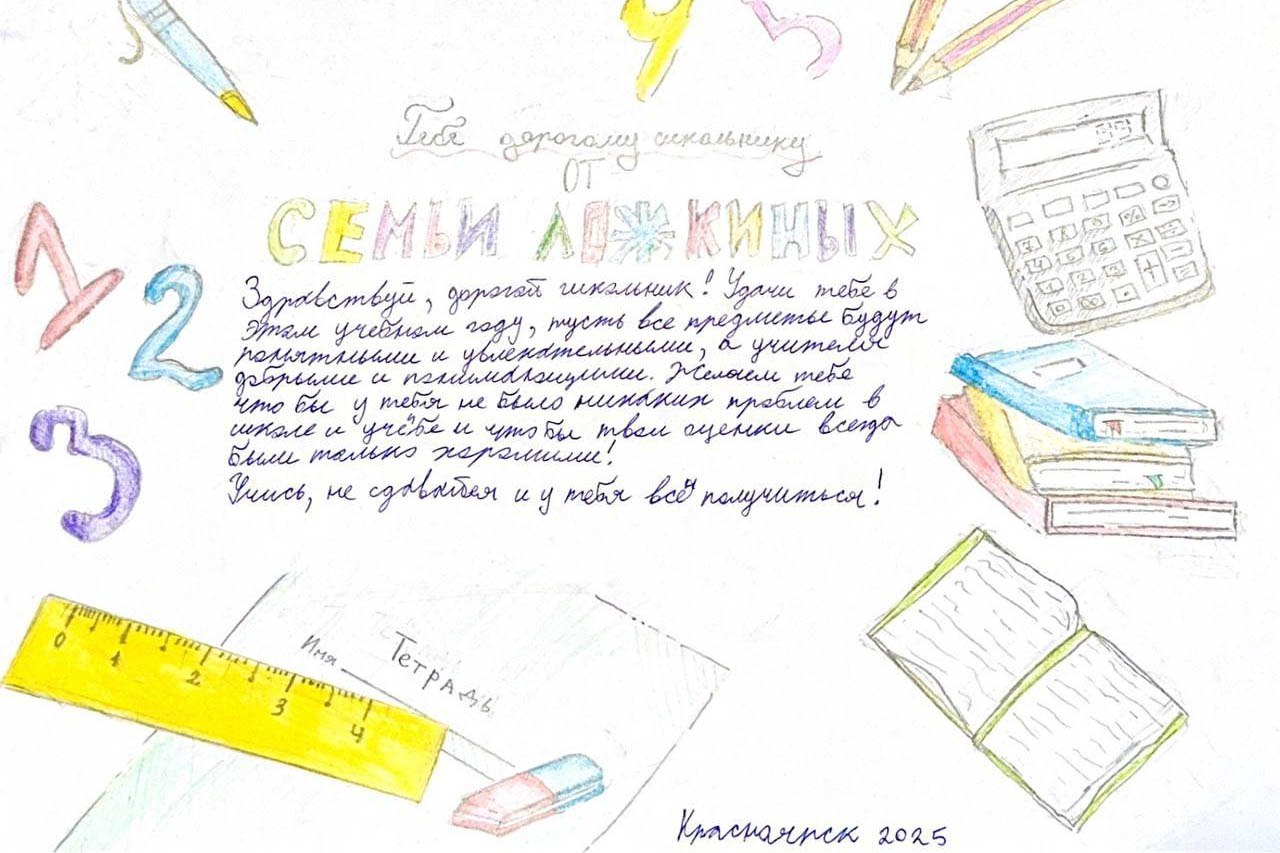 Тебе дорогому школьнику
ОТ
СЕМЬИ ЛОЖКИНЫХ
Здравствуй, дорогой школьник! Удачи тебе в
этом учебном году, пусть все предметы будут
понятными и увлекательными, а учителя
добрыми и понимающими. Желаем тебе
что бы у тебя не было никаких проблем в
школе и учёбе и что бы твои оценки всегда
были только хорошими!
Учись, не сдавайся и у тебя всё получиться!
1
2
3
4
5
0 1 2 3 4
Имя
Тетрадь
Красноярск 2025